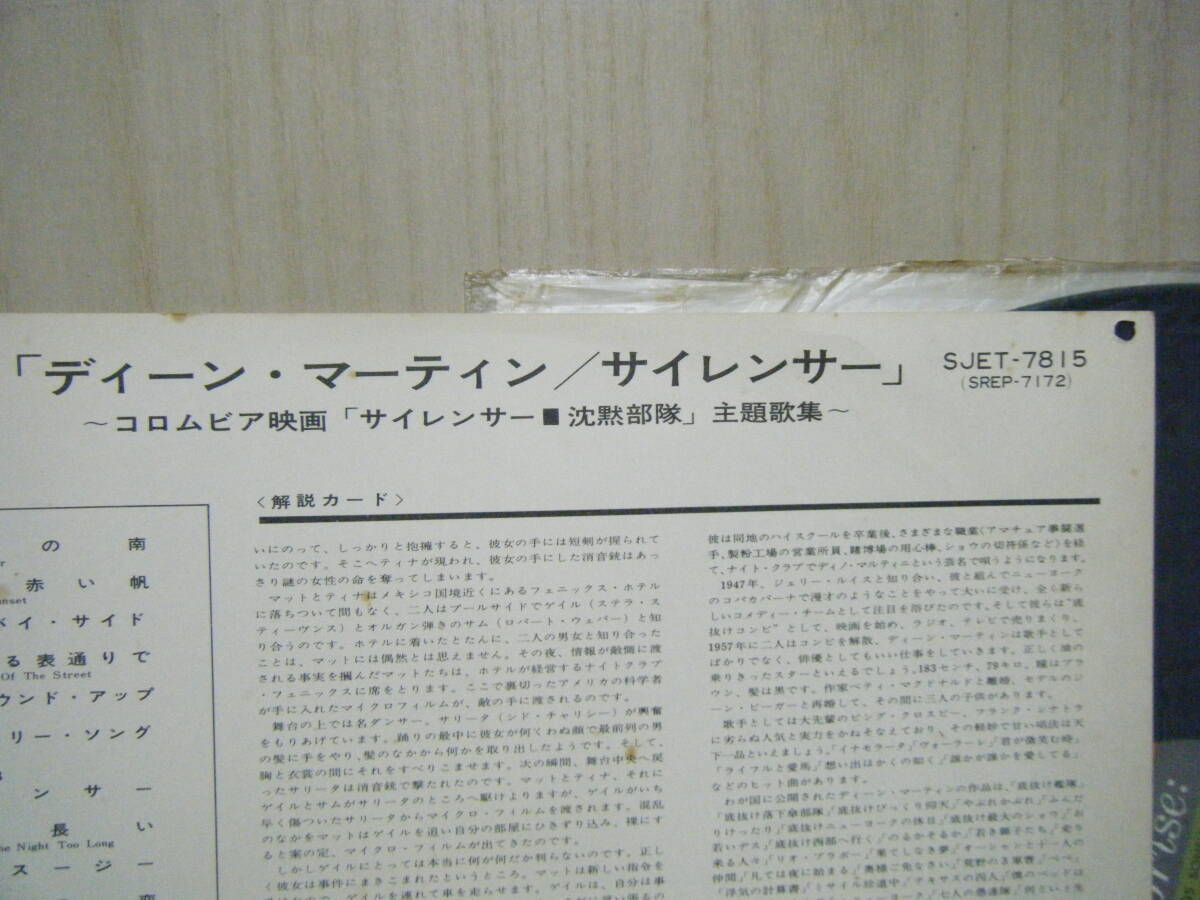 「ディーン・マーティン/サイレンサー」
SJET-7815
(SREP-7172)
~コロムビア映画「サイレンサー■沈黙部隊」主題歌集~
の 南
赤 い 帆
nset
ベイ・サイド
る 表 通 り で
Of The Street
ウンド・アップ
リー・ソング
ン サ ー
長 い
he Night Too Long
ス ー ジ ー
恋
<解説カード>
いにのって、しっかりと抱擁すると、彼女の手には短剣が握られて
いたのです。そこへティナが現われ、彼女の手にした消音銃はあっ
さり謎の女性の命を奪ってしまいます。
マットとティナはメキシコ国境近くにあるフェニックス・ホテル
に落ちついて間もなく、二人はプールサイドでゲイル(ステラ・ス
ティーヴンス)とオルガン弾きのサム(ロバート・ウェバー)と知
り合うのです。ホテルに着いたとたんに、二人の男女と知り合った
ことは、マットには偶然とは思えません。その夜、情報が敵側に渡
される事実を掴んだマットたちは、ホテルが経営するナイトクラブ
・フェニックスに席をとります。ここで裏切ったアメリカの科学者
が手に入れたマイクロフィルムが、敵の手に渡されるのです。
舞台の上では名ダンサー、サリータ(シド・チャリシー)が興奮
をもりあげています。踊りの最中に彼女が何くわぬ顔で最前列の男
の髪に手をやり、髪のなかから何かを取り出したようです。そして、
胸と衣裳の間にそれをすべりこませます。次の瞬間、舞台中央へ戻
ったサリータは消音銃で撃たれたのです。マットとティナ、それに
ゲイルとサムがサリータのところへ駆けよりますが、ゲイルがいち
早く傷ついたサリータからマイクロ・フィルムを渡されます。混乱
のなかをマットはゲイルを追い自分の部屋にひきずり込み、裸にす
ると案の定、マイクロ・フィルムが出てきたのです。
しかしゲイルにとっては本当に何が何だか判らないのです。正し
く彼女は事件にまきこまれたというところ。マットは新しい指令を
ゲイルを連れて車を走らせます。ゲイルは、自分は事
彼は同地のハイスクールを卒業後、さまざまな職業(アマチュア拳闘選
手、製粉工場の営業所員、賭博場の用心棒、ショウの切符係など)を経
て、ナイト・クラブでディノ・マルティニという芸名で唄うようになります。
1947年、ジェリー・ルイスと知り合い、彼と組んでニューヨーク
のコパカバーナで漫才のようなことをやって大いに受け、全く新ら
しいコメディー・チームとして注目を浴びたのです。そして彼らは“底
抜けコンビ”として、映画を始め、ラジオ、テレビで売りまくり、
1957年に二人はコンビを解散、ディーン・マーティンは歌手として
ばかりでなく、俳優としてもいい仕事をしていきます。正しく油の
乗りきったスターといえるでしょう。183センチ、79キロ、瞳はブラ
ウン、髪は黒です。作家ベティ・マクドナルドと離婚、モデルのジ
ーン・ビーガーと再婚して、その間に三人の子供があります。
歌手としては大先輩のビング・クロスビー、フランク・シナトラ
に劣らぬ人気と実力をかねそなえており、その軽妙で甘い唱法は天
下一品といえましょう。「イナモラータ」「ヴォラーレ」「君が微笑む時」
「ライフルと愛馬」「想い出はかくの如く」「誰かが誰かを愛してる」
などのヒット曲があります。
わが国に公開されたディーン・マーティンの作品は、「底抜け艦隊」
「底抜け落下傘部隊」「底抜けびっくり仰天」「やぶれかぶれ」「ふんだ
りけったり」「底抜けニューヨークの休日」「底抜け最大のショウ」「お
若いデス」「底抜け西部へ行く」「のるかそるか」「若き獅子たち」「走り
来る人々」「リオ・ブラボー」「果てしなき夢」「オーシャンと十一人の
仲間」「凡ては夜に始まる」「奥様ご免なさい」「荒野の3軍曹」「ペペ」
「浮気の計算書」「ミサイル珍道中」「テキサスの四人」「僕のベッドは
「七人の愚連隊」「何という